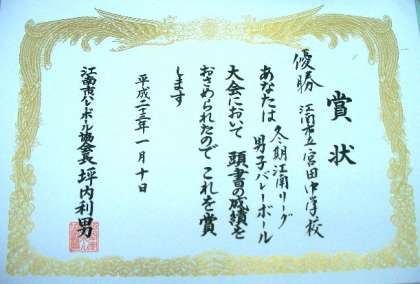 賞状
優勝
江南市立宮田中学校
冬期江南リーグ
男子バレーボール
あなたは
大会において 頭書の成績を
おさめられたので これを賞
します
平成二十三年一月十日
江南市バレーボール協会長 坪内利男